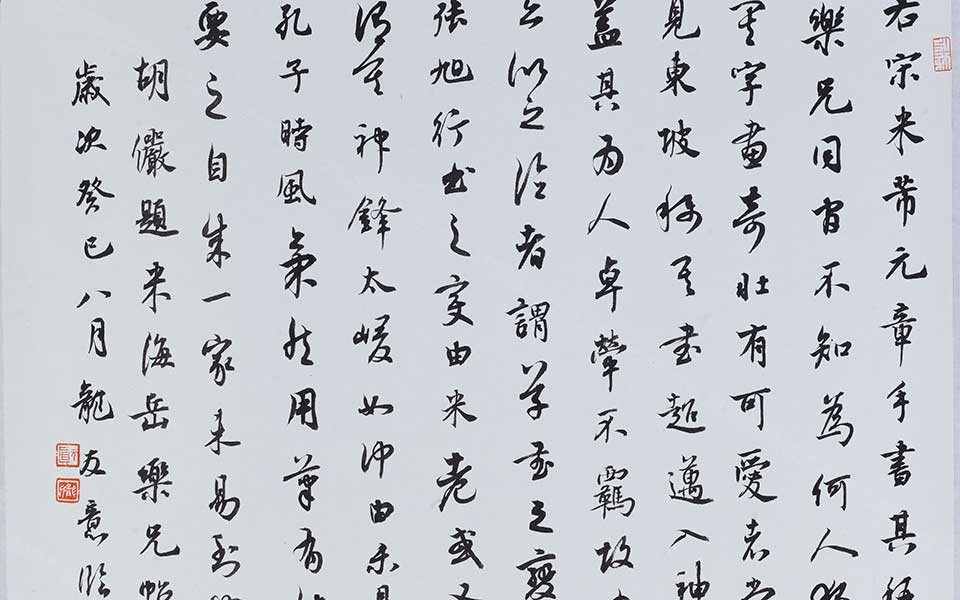 右宋米芾元章手書其稱
樂兄同官不知為何人
其字畫奇壯有可愛者嘗
見東坡稱其書超邁入神
蓋其為人卓犖不羈故
亦似之論者謂草書之變
張旭行書之變由米老或又
謂其神鋒太峻如仲由未見
孔子時風氣然用筆有
要之自成一家未易到
胡儼題米海岳樂兄帖
歲次癸巳八月龍友意臨